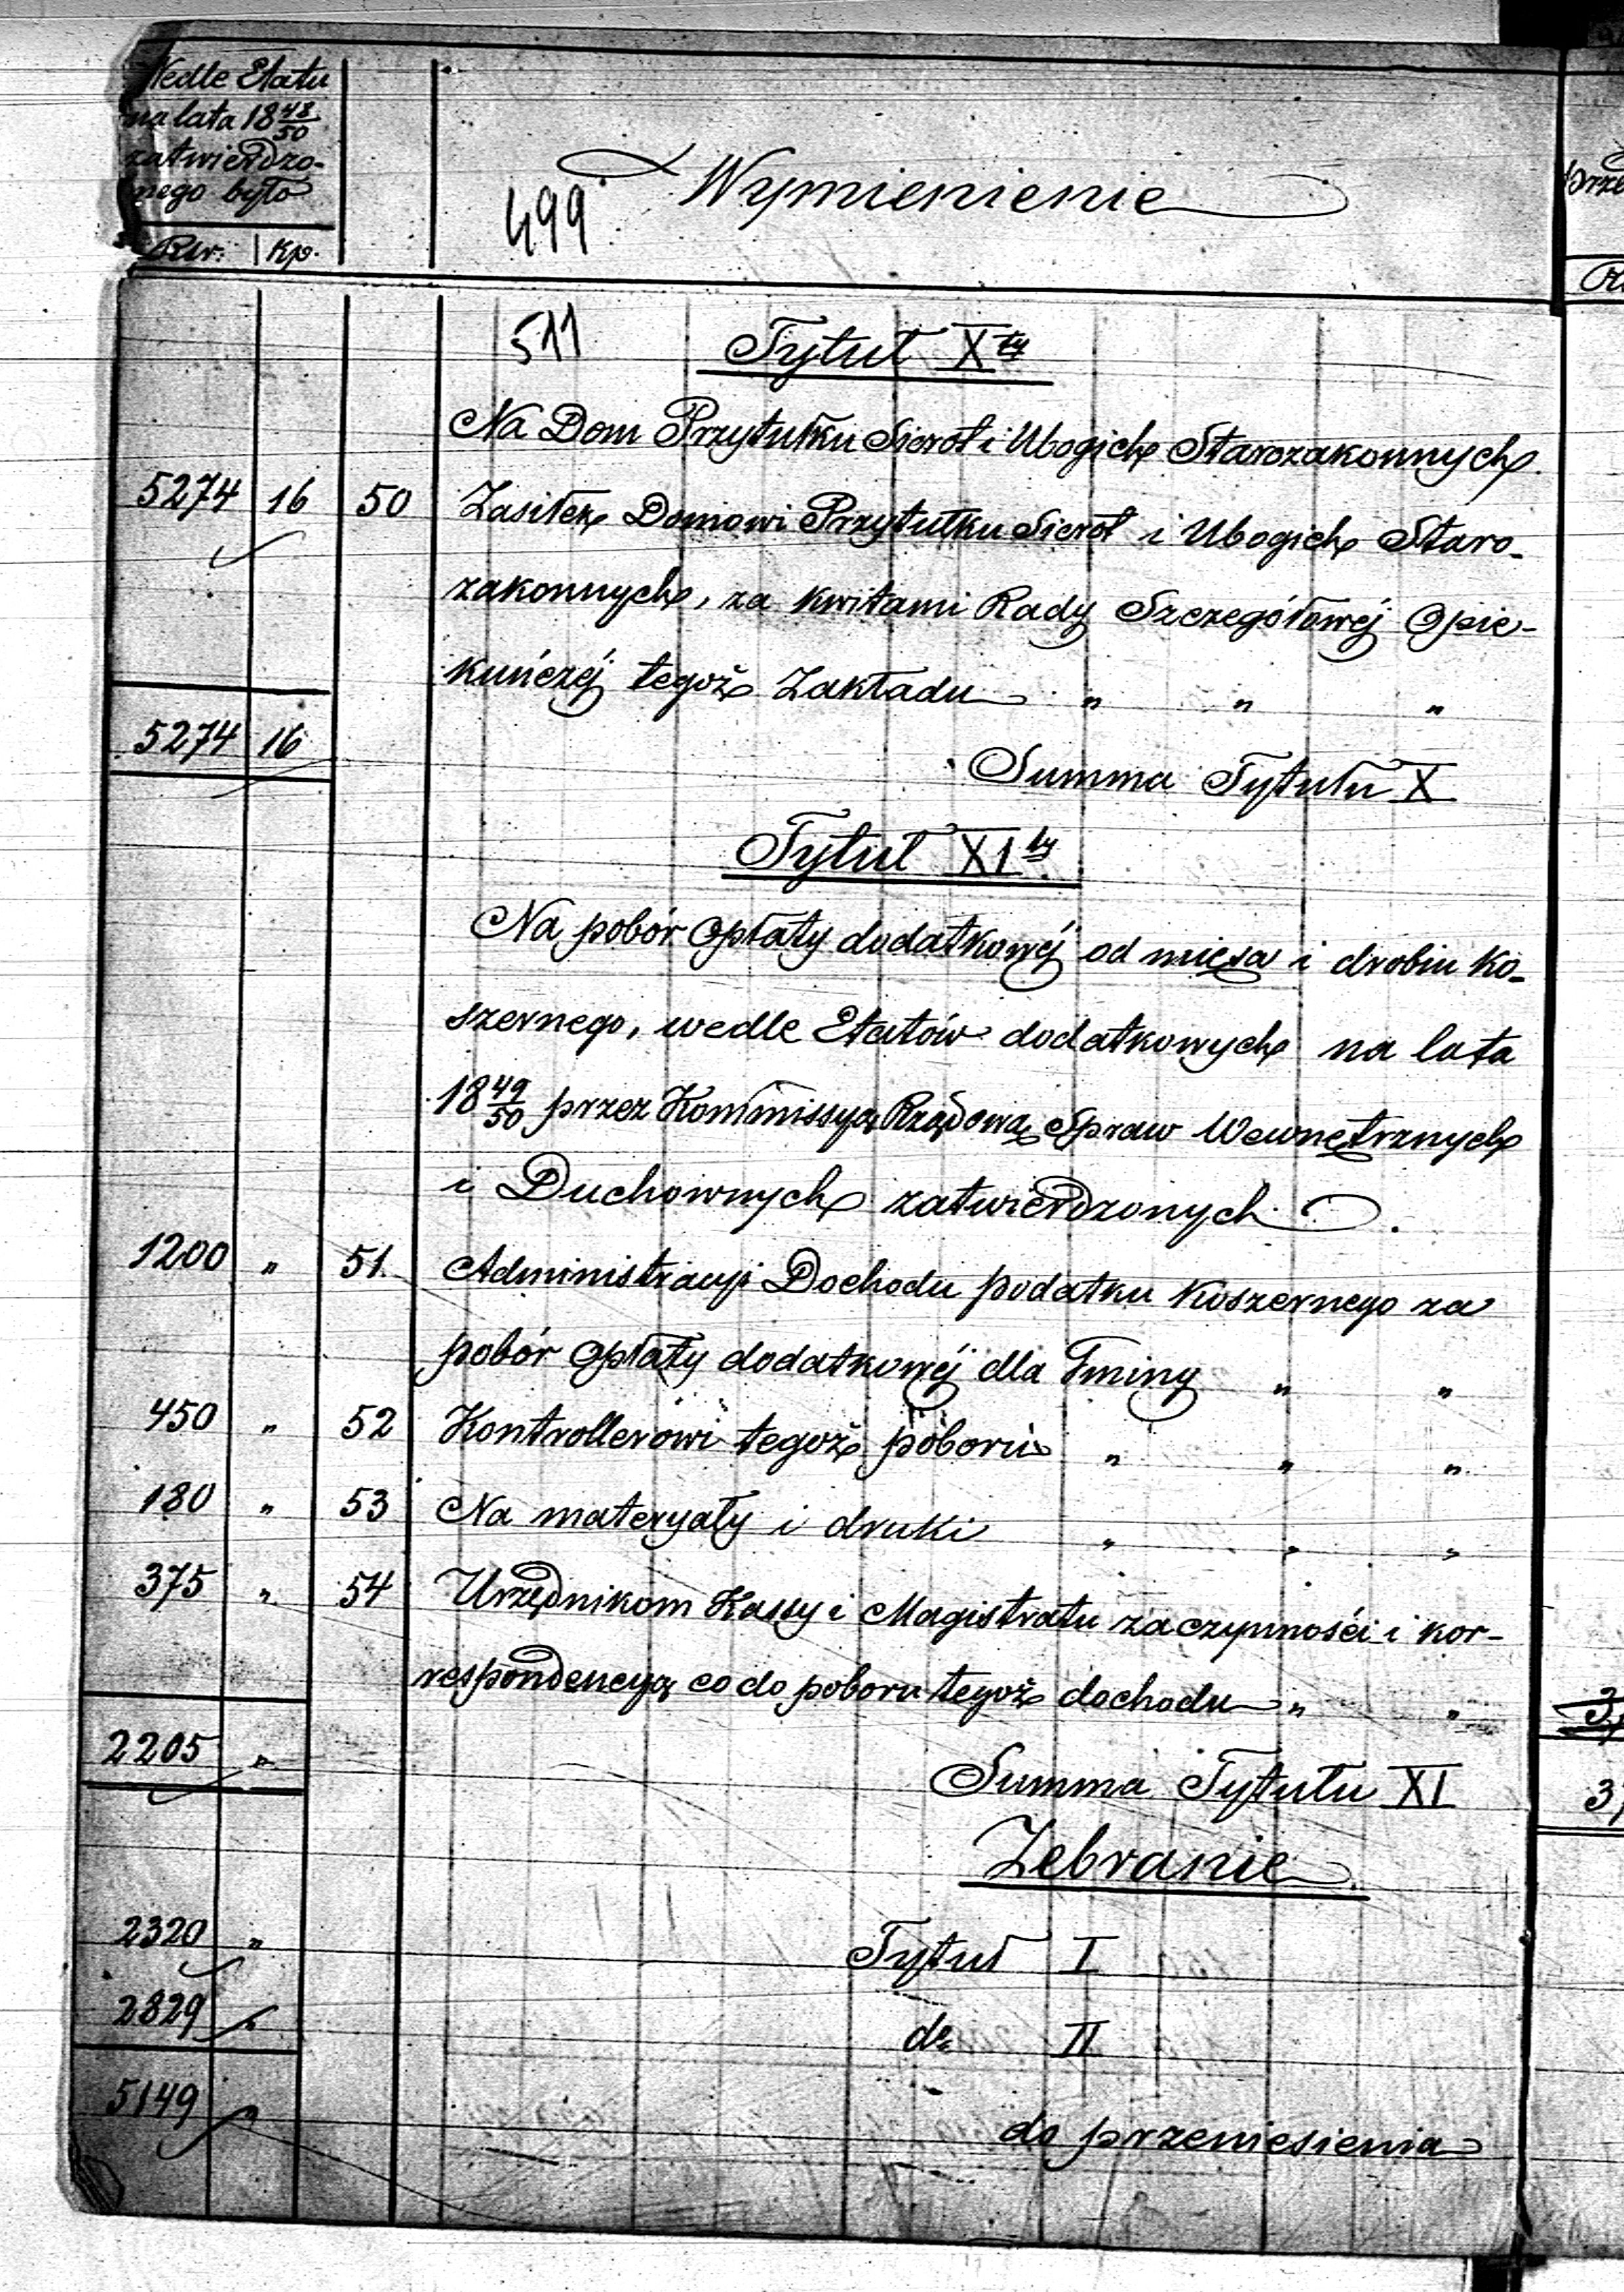 Wedle Etatu
na lata 18 48/50
zatwierdzo-
nego było
Rsr. Kp.
499 Wymienienie
511 Tytuł X ty
Na Dom Przytułku Sierot i Ubogich Starozakonnych
5274 16 50 Zasiłek Domowi Przytułku Sierot i Ubogich Staro-
zakonnych, za kwitami Rady Szczegółowéj Opie-
kuńczéj tegoż Zakładu " " "
5274 16
Summa Tytułu X
Tytuł XI ty
Na pobór opłaty dodatkowéj od mięsa i drobiu ko-
szernego, wedle Etatów dodatkowych na lata
18 49/50 przez Kommissyą Rządową Spraw Wewnętrznych
i Duchownych zatwierdzonych.
1200 " 51. Administracyi Dochodu podatku koszernego za
pobór opłaty dodatkowéj dla Gminy " "
450 " 52 Kontrollerowi tegoż poboru " " "
180 " 53 Na materyały i druki " " "
375 " 54 Urzędnikom Kassy i Magistratu za czynności i kor-
respondencyą co do poboru tegoż dochodu " "
2205 "
Summa Tytułu XI
Zebranie
2320 " Tytuł I
2829 " do II
5149 "
do przeniesienia